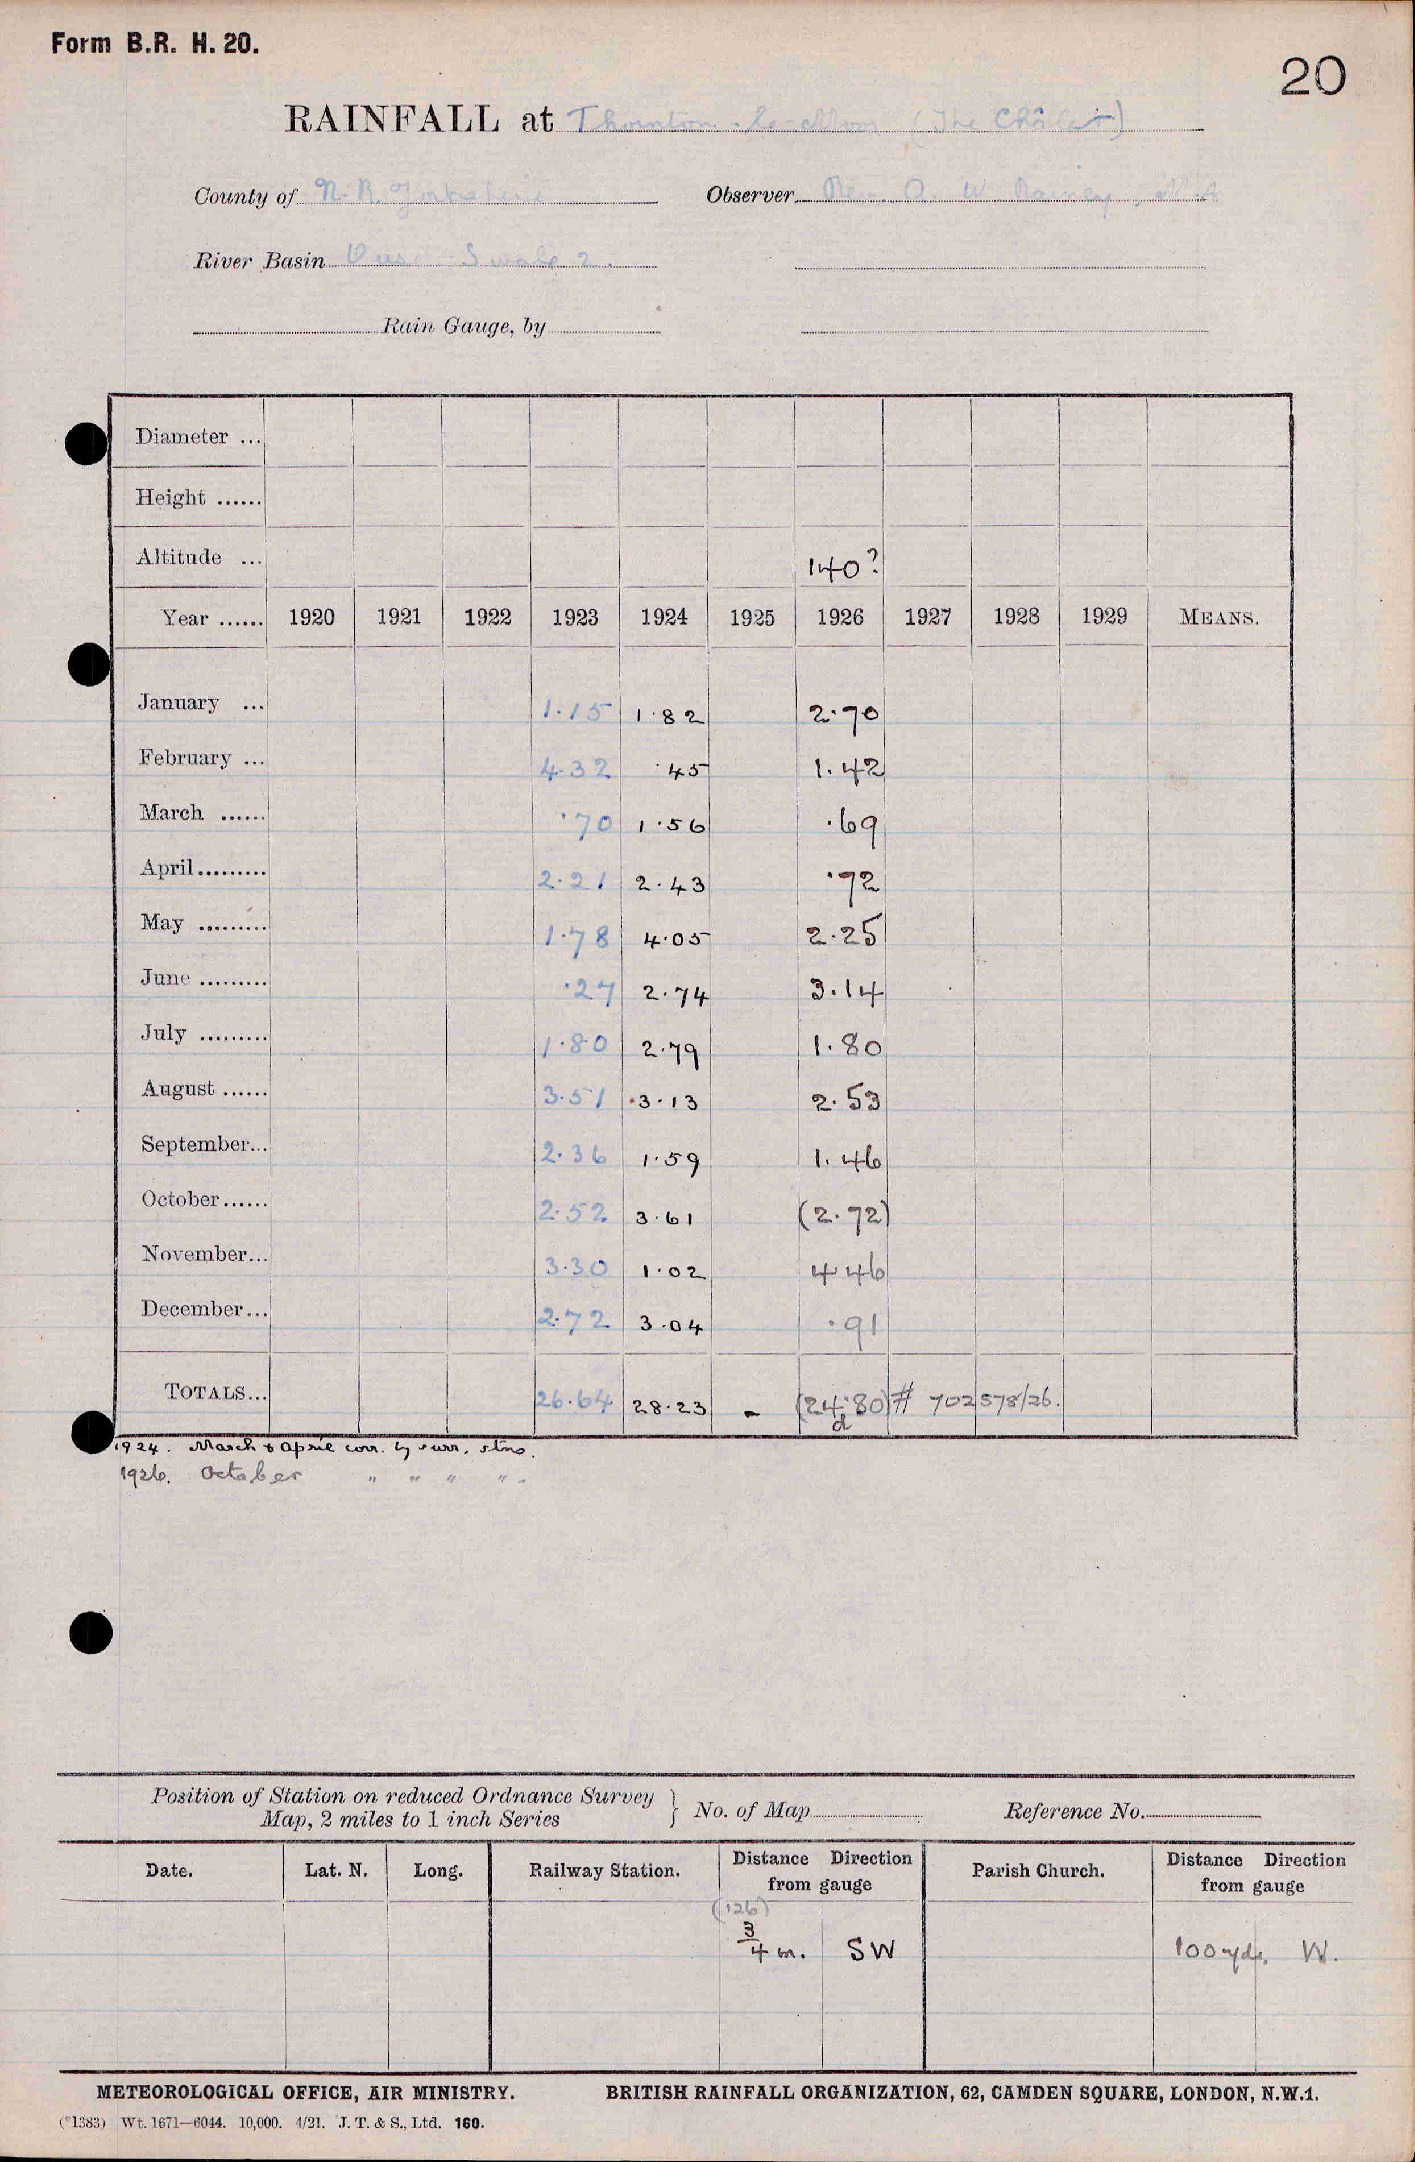 Form B.R. H. 20.
20
RAINFALL at Thornton-le-Moor (The Châlet)
County of N. R. Yorkshire Observer Rev. A. W.
River Basin Ouse - Swale 2.
Rain Gauge, by
Diameter ...
Height ......
Altitude ... 140?
Year ...... 1920 1921 1922 1923 1924 1925 1926 1927 1928 1929 MEANS.
January ... 1.15 1.82 2.70
February ... 4.32 .45 1.42
March ...... .70 1.56 .69
April......... 2.21 2.43 .72
May ......... 1.78 4.05 2.25
June ......... .27 2.74 3.14
July ......... 1.80 2.79 1.80
August ...... 3.51 3.13 2.53
September... 2.36 1.59 1.46
October...... 2.52 3.61 (2.72)
November... 3.30 1.02 4.46
December... 2.72 3.04 .91
TOTALS... 26.64 28.23 - (24.80) # 702578/26.
d
1924. March & April corr. by surr. stns.
1926. October " " " " .
Position of Station on reduced Ordnance Survey
Map, 2 miles to 1 inch Series } No. of Map Reference No.
Date. Lat. N. Long. Railway Station. Distance Direction from gauge Parish Church. Distance Direction from gauge
(126)
3/4 m. SW 100 yds. W.
METEOROLOGICAL OFFICE, AIR MINISTRY. BRITISH RAINFALL ORGANIZATION, 62, CAMDEN SQUARE, LONDON, N.W.1.
(*1383) Wt. 1671—6044. 10,000. 4/21. J. T. & S., Ltd. 160.